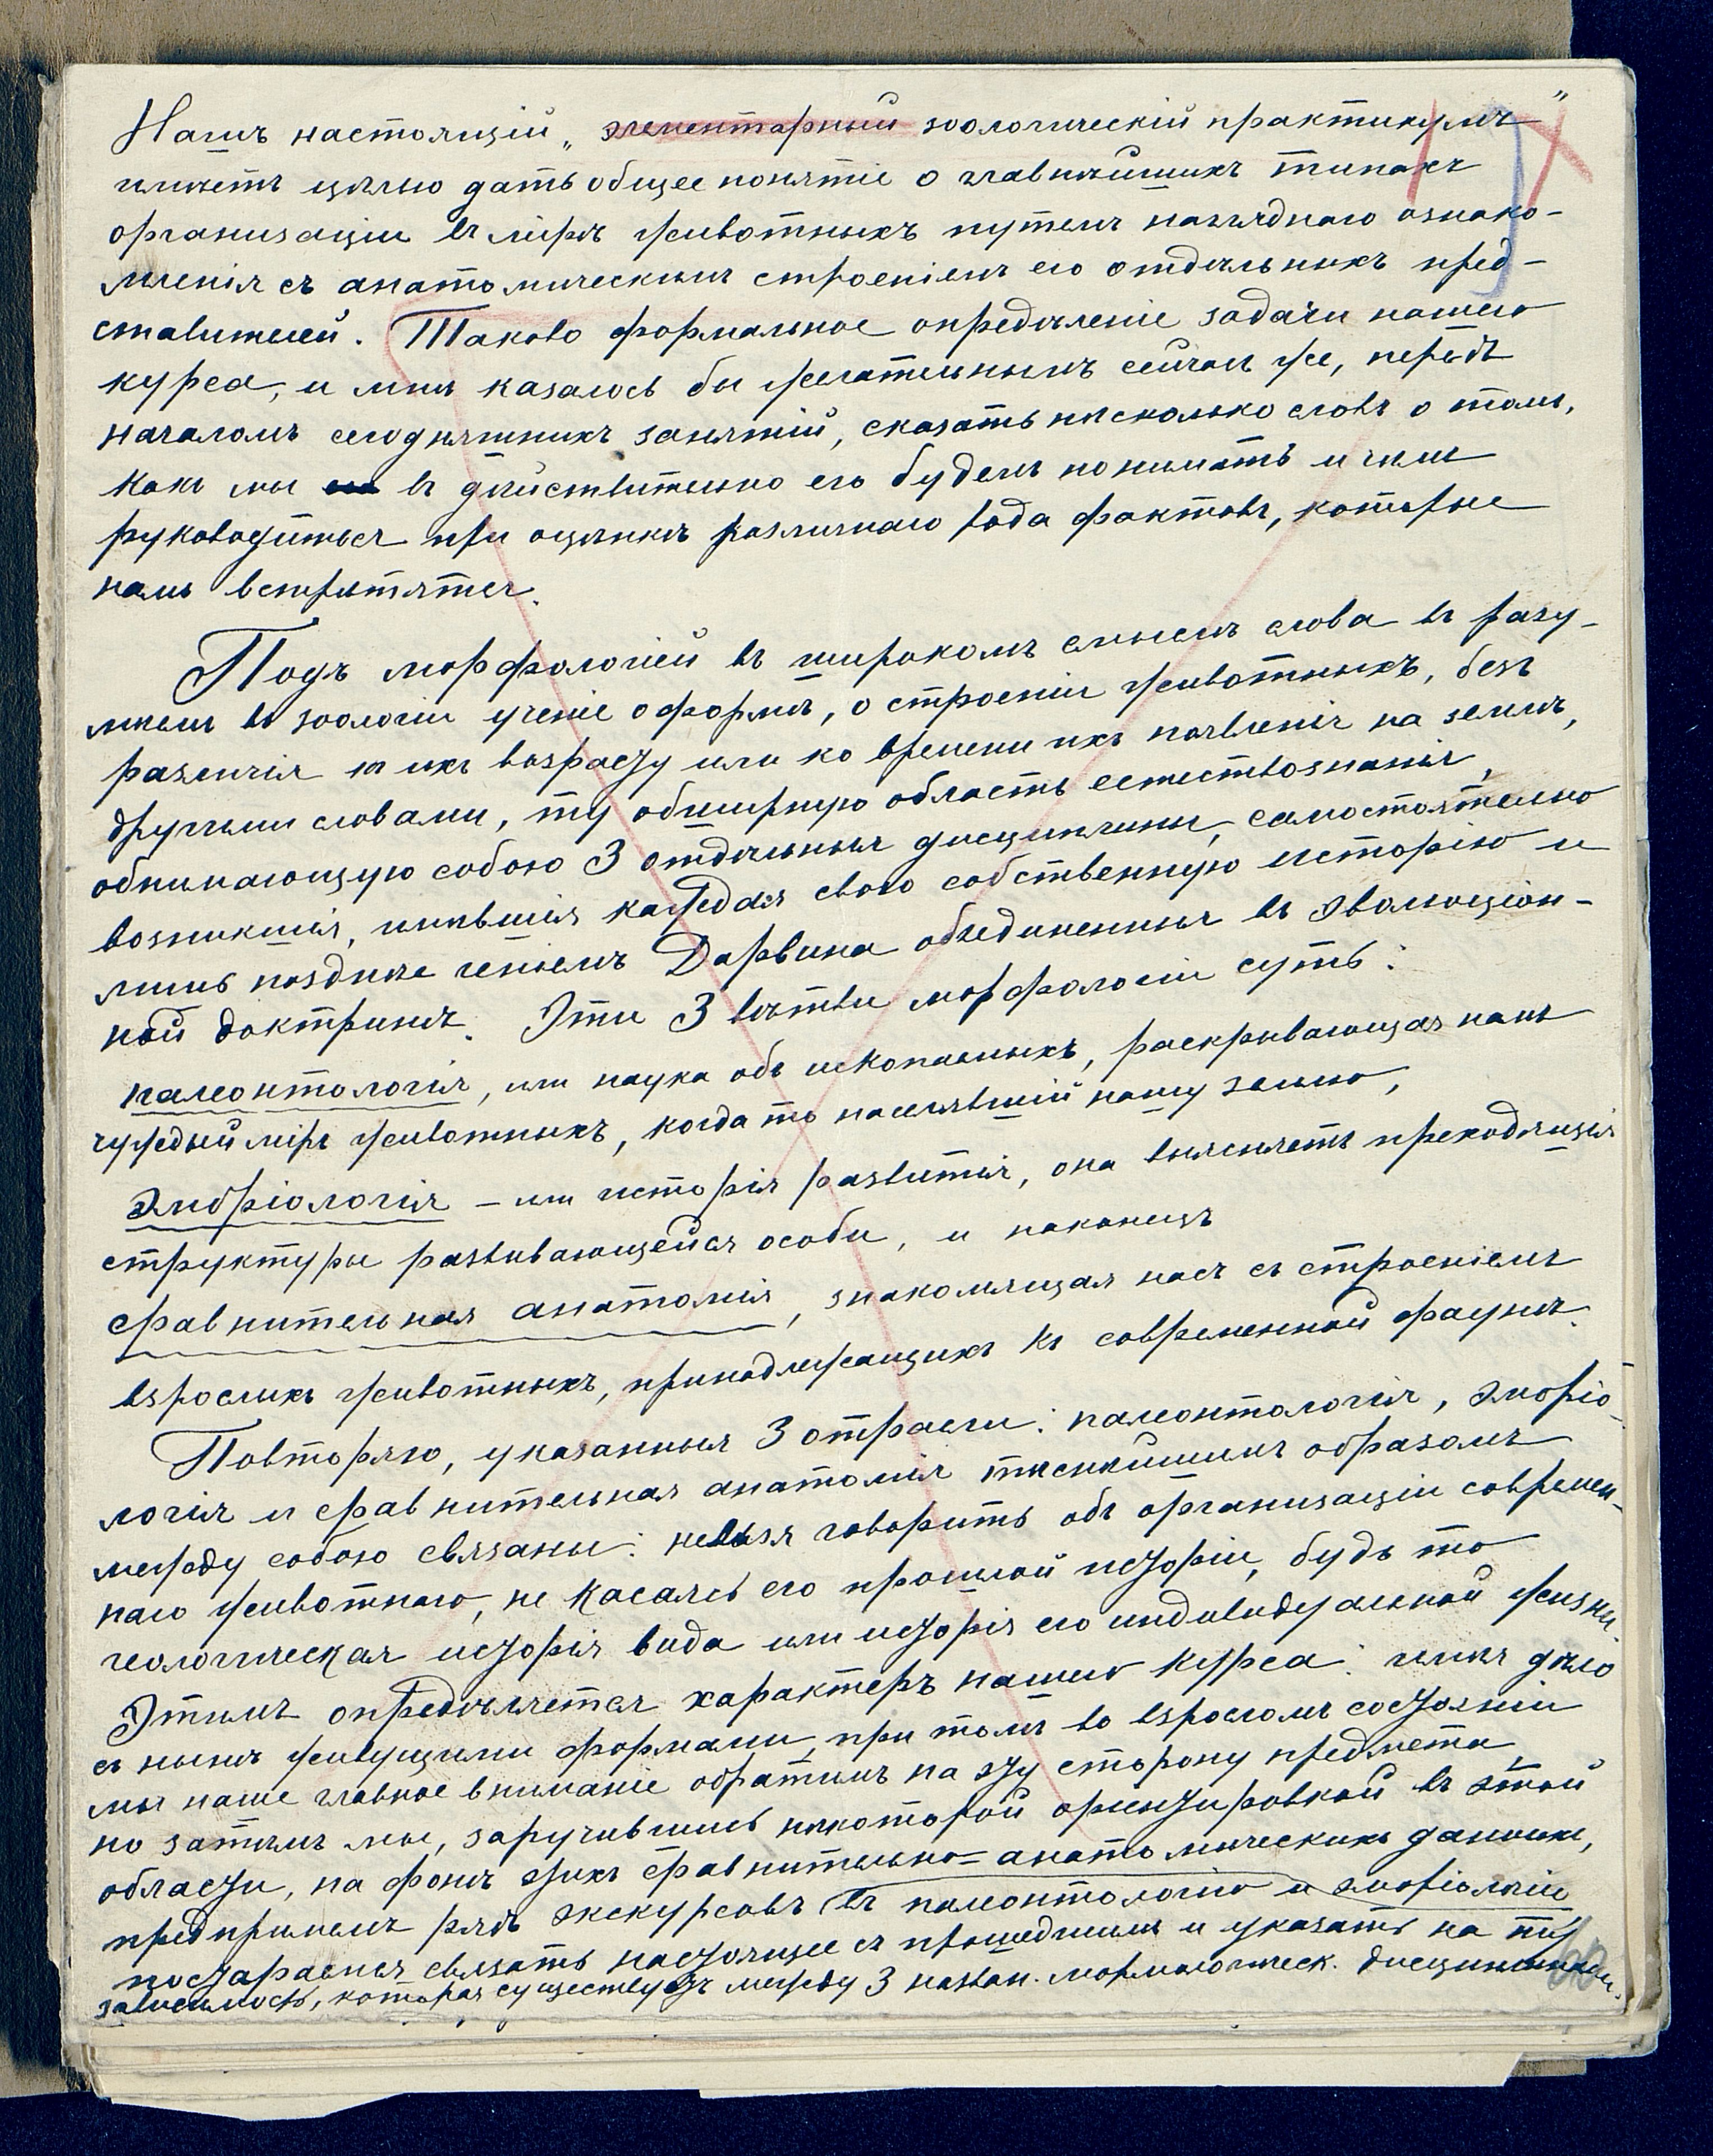 Нашъ настоящій „элементарный зоологическій практикумъ"
имѣетъ цѣлью дать общее понятіе о главнѣйшихъ типахъ
организаціи въ мірѣ животныхъ путемъ нагляднаго ознако-
мленія съ анатомическимъ строеніемъ его отдѣльныхъ пред-
ставителей. Таково формальное опредѣленіе задачи нашего
курса, и мнѣ казалось бы желательнымъ сейчасъ же, передъ
началомъ сегодняшнихъ занятій, сказать нѣсколько словъ о томъ,
какъ мы въ дѣйствительно его будемъ понимать и чѣмъ
руководиться при оцѣнкѣ различнаго рода фактовъ, которые
намъ встрѣтятся.
Подъ морфологіей въ широкомъ смыслѣ слова въ разу-
мѣемъ въ зоологіи ученіе о формѣ, о строеніи животныхъ, безъ
различія къ ихъ возрасту или ко времени ихъ появленія на землѣ,
другими словами, ту обширную область естествознанія,
обнимающую собою 3 отдѣльныя дисциплины, самостоятельно
возникшія, имѣвшія каждая свою собственную исторію и
лишь позднѣе геніемъ Дарвина объединенныя въ эволюціон-
ной доктринѣ. Эти 3 вѣтви морфологіи суть:
палеонтологія, или наука объ ископаемыхъ, раскрывающая намъ
чуждый міръ животныхъ, когда то населявшій нашу землю,
эмбріологія – или исторія развитія, она выясняетъ преходящія
структуры развивающейся особи, и наконецъ
сравнительная анатомія, знакомящая насъ съ строеніемъ
взрослыхъ животныхъ, принадлежащихъ къ современной фаунѣ.
Повторяю, указанныя 3 отрасли: палеонтологія, эмбріо-
логія и сравнительная анатомія тѣснѣйшимъ образомъ
между собою связаны: нельзя говорить объ организаціи современ-
наго животнаго, не касаясь его прошлой исторіи, будь то
геологическая исторія вида или исторія его индивидуальной жизни.
Этимъ опредѣляется характеръ нашего курса: имѣя дѣло
съ нынѣ живущими формами, при томъ во взросломъ состояніи
мы наше главное вниманіе обратимъ на эту сторону предмета,
но затѣмъ мы, заручившись нѣкоторой оріентировкой въ этой
области, на фонѣ этихъ сравнительно-анатомическихъ данныхъ,
предпримемъ рядъ экскурсовъ въ палеонтологію и эмбріологію
постараемся связать настоящее съ прошедшимъ и указать на ту
зависимость, которая существуетъ между 3 назван. морфологическ. дисциплинами.